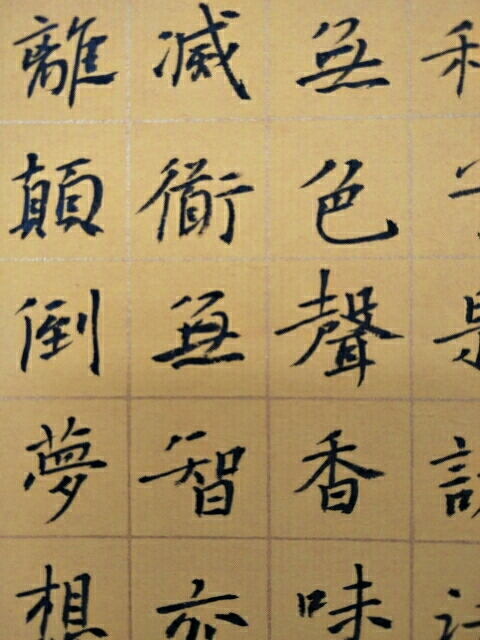 無色聲香味
滅衜無智亦
離顛倒夢想